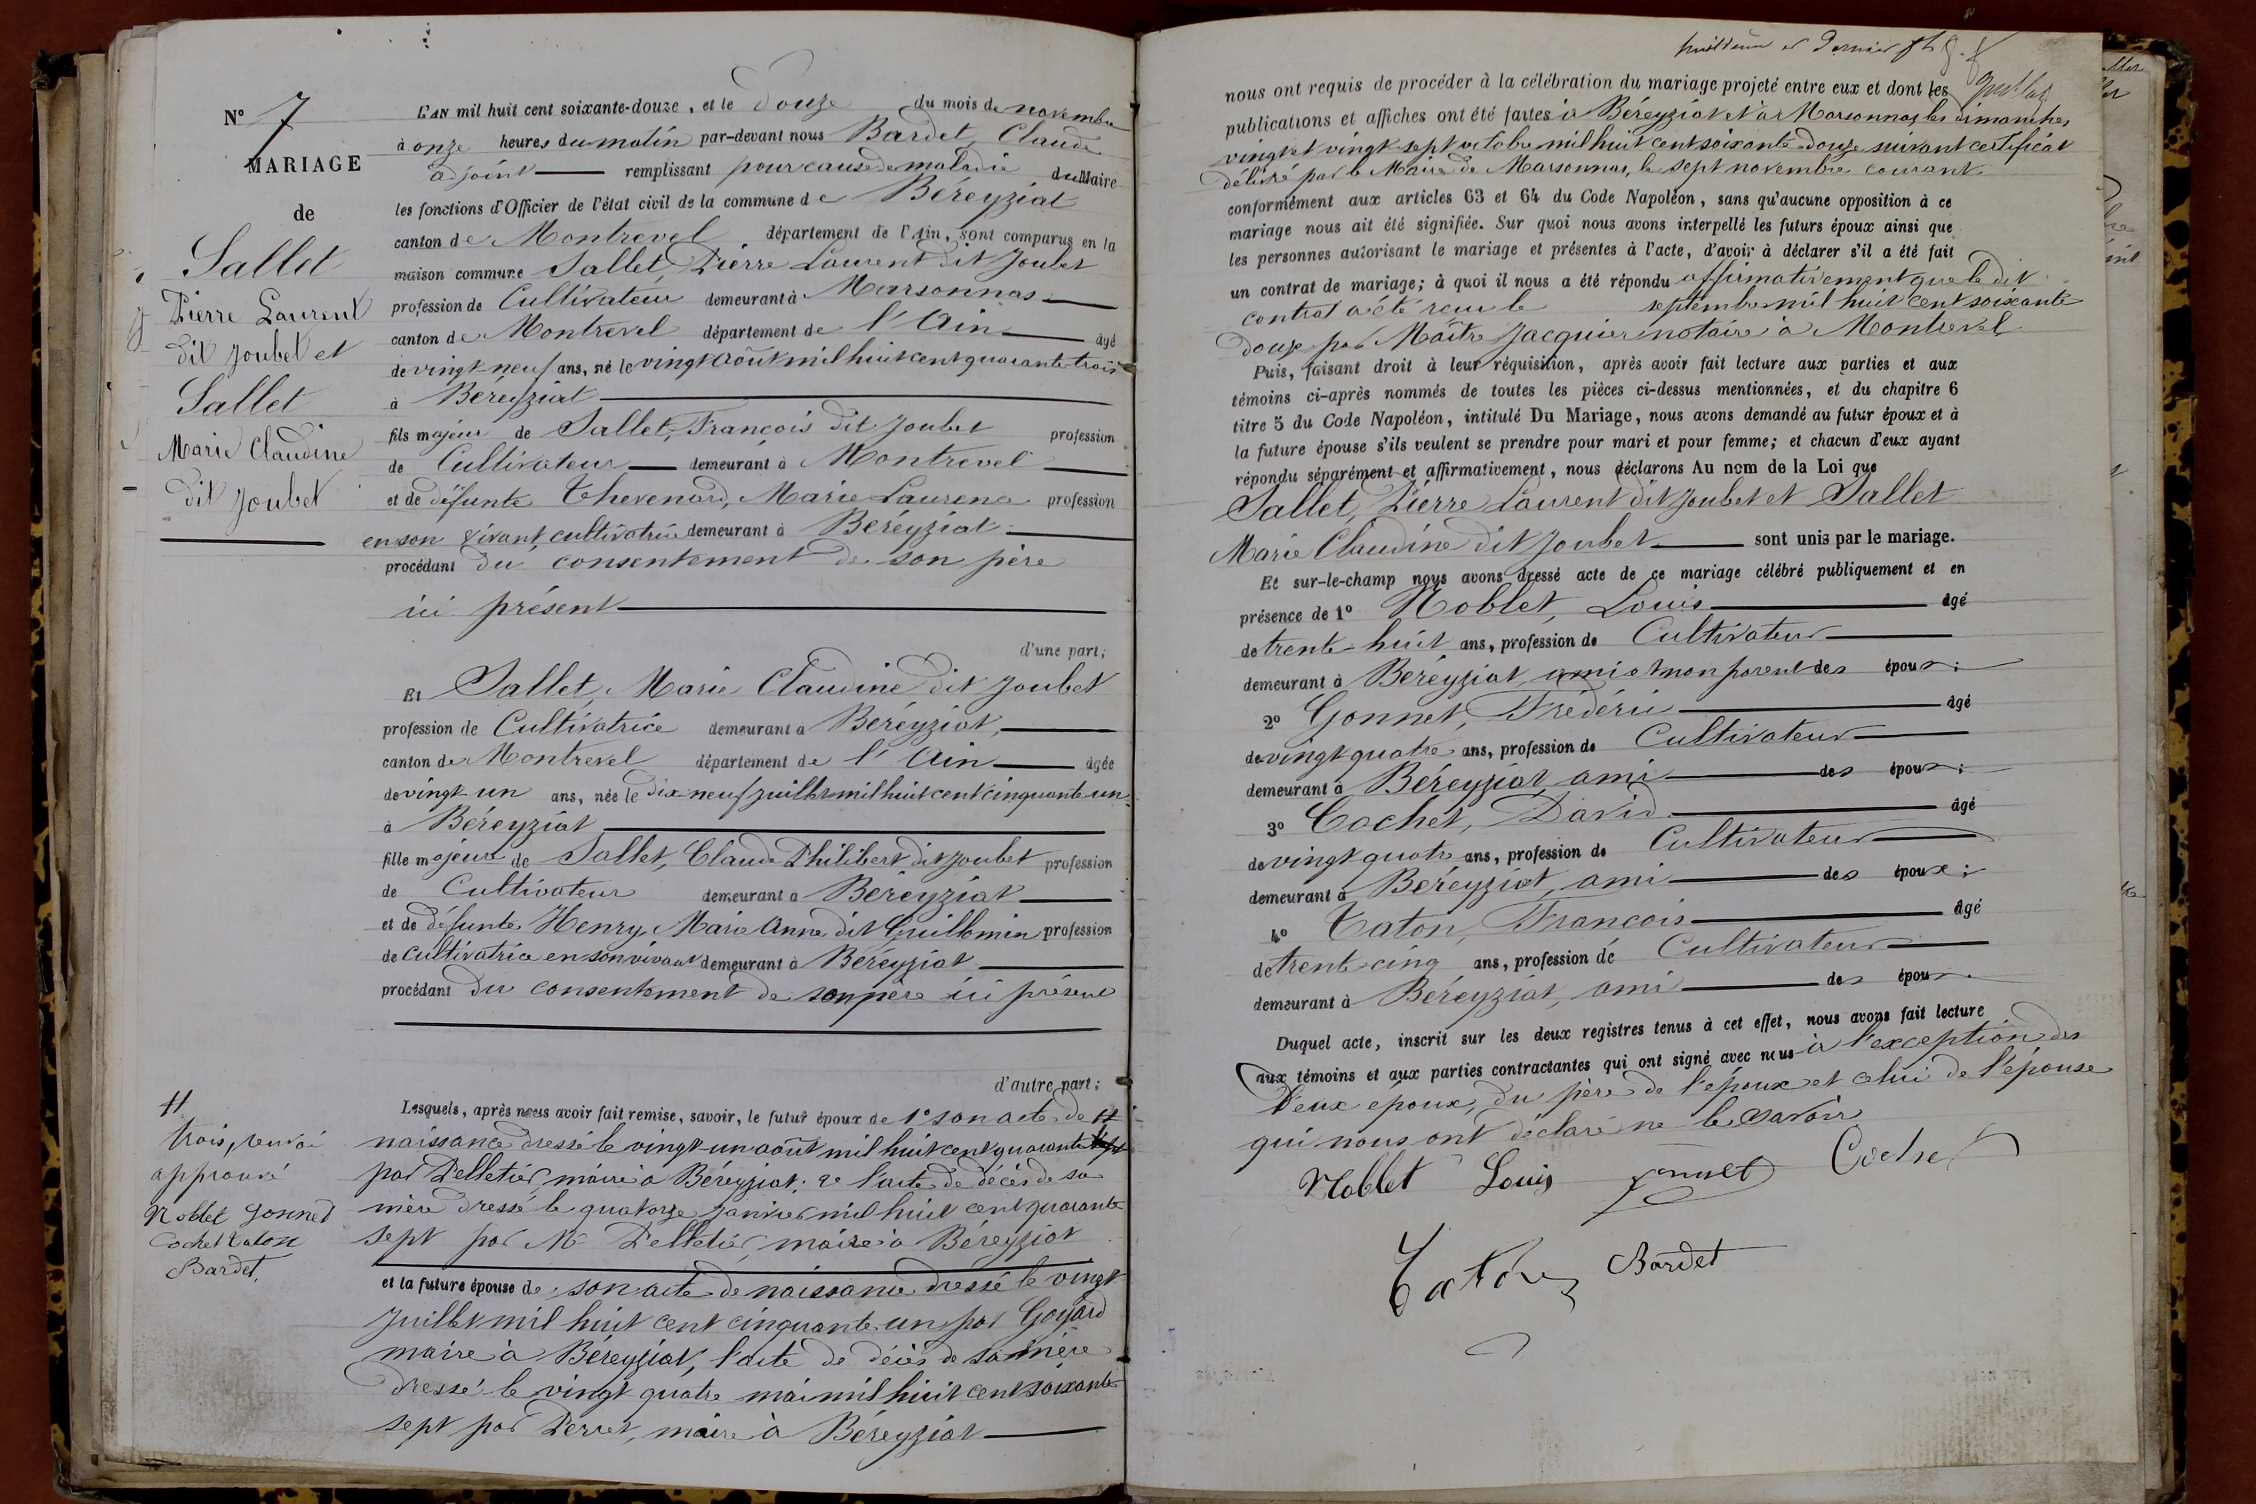 N° 7
MARIAGE
de
Sallet
Pierre Laurent
dit Joubet et
Sallet
Marie Claudine
dit Joubet
L'AN mil huit cent soixante-douze, et le douze du mois de novembre
à onze heures du matin par-devant nous Bardet, Claude
adjoint remplissant pour cause de maladie du Maire
les fonctions d'Officier de l'état civil de la commune de Béreyziat
canton de Montrevel département de l'Ain, sont comparus en la
maison commune Sallet, Pierre Laurent dit Joubet
profession de Cultivateur demeurant à Marsonnas
canton de Montrevel département de l'Ain âgé
de vingt-neuf ans, né le vingt août mil huit cent quarante trois
à Béréyziat
fils majeur de Sallet, François dit Joubet profession
de Cultivateur demeurant à Montrevel
et de défunte Thevenard, Marie Laurence profession
en son vivant cultivatrice demeurant à Beréyziat
procédant du consentement de son père
ici présent
d'une part;
Et Sallet, Marie Claudine dit Joubet
profession de Cultivatrice demeurant à Beréyziat,
canton de Montrevel département de l'Ain âgée
de vingt un ans, née le dix-neuf juillet mil huit cent cinquante un
à Béreyziat
fille majeure de Sallet, Claude Philibert dit Joubet profession
de Cultivateur demeurant à Beréyziat
et de défunte Henry, Marie Anne dit Guillemin profession
de cultivatrice en son vivant demeurant à Béreyziat
procédant du consentement de son père ici présent
d'autre part;
Lesquels, après nous avoir fait remise, savoir, le futur époux de 1° son acte de #
naissance dressé le vingt-un août mil huit cent quarante
par Pelletier, maire à Béreyziat; 2° l'acte de décès de sa
mère dressé le quatorze janvier mil huit cent quarante
sept par Mr Pelletier, maire à Béreyziat
et la future épouse de son acte de naissance dressé le vingt
Juillet mil huit cent cinquante un par Goyard
maire à Béreyziat, l'acte de décès de sa mère
dressé le vingt quatre mai mil huit cent soixante
sept par Perret, maire à Béreyziat
#
trois, renvoi
approuvé
Noblet Gonnet
Cochet Taton
Bardet.
nous ont requis de procéder à la célébration du mariage projeté entre eux et dont les
publications et affiches ont été faites à Béreyziat et à Marsonnas les dimanches
vingt et vingt-sept octobre mil huit cent soixante-douze suivant certificat
délivré par le Maire de Marsonnas, le sept novembre courant
conformément aux articles 63 et 64 du Code Napoléon, sans qu'aucune opposition à ce
mariage nous ait été signifiée. Sur quoi nous avons interpellé les futurs époux ainsi que
les personnes autorisant le mariage et présentes à l'acte, d'avoir à déclarer s'il a été fait
un contrat de mariage; à quoi il nous a été répondu affirmativement que le dit
contrat a été reçu le septembre mil huit cent soixante
douze par Maître Jacquier notaire à Montrevel
Puis, faisant droit à leur réquisition, après avoir fait lecture aux parties et aux
témoins ci-après nommés de toutes les pièces ci-dessus mentionnées, et du chapitre 6
titre 5 du Code Napoléon, intitulé Du Mariage, nous avons demandé au futur époux et à
la future épouse s'ils veulent se prendre pour mari et pour femme; et chacun d'eux ayant
répondu séparément et affirmativement, nous déclarons Au nom de la Loi que
Sallet, Pierre Laurent dit Joubet et Sallet
Marie Claudine dit Joubet sont unis par le mariage.
Et sur-le-champ nous avons dressé acte de ce mariage célébré publiquement et en
présence de 1° Noblet, Louis âgé
de trente-huit ans, profession de Cultivateur
demeurant à Béreyziat, ami et non parent des époux;
2° Gonnet, Frédéric âgé
de vingt quatre ans, profession de Cultivateur
demeurant à Béreyziat, ami des époux;
3° Cochet, David âgé
de vingt quatre ans, profession de Cultivateur
demeurant à Béreyziat, ami des époux;
4° Taton, François âgé
de trente-cinq ans, profession de Cultivateur
demeurant à Béreyziat, ami des époux.
Duquel acte, inscrit sur les deux registres tenus à cet effet, nous avons fait lecture
aux témoins et aux parties contractantes qui ont signé avec nous à l'exception des
deux époux, du père de l'époux et celui de l'épouse
qui nous ont déclaré ne le savoir
Noblet Louis Gonnet Cochet
Taton Bardet